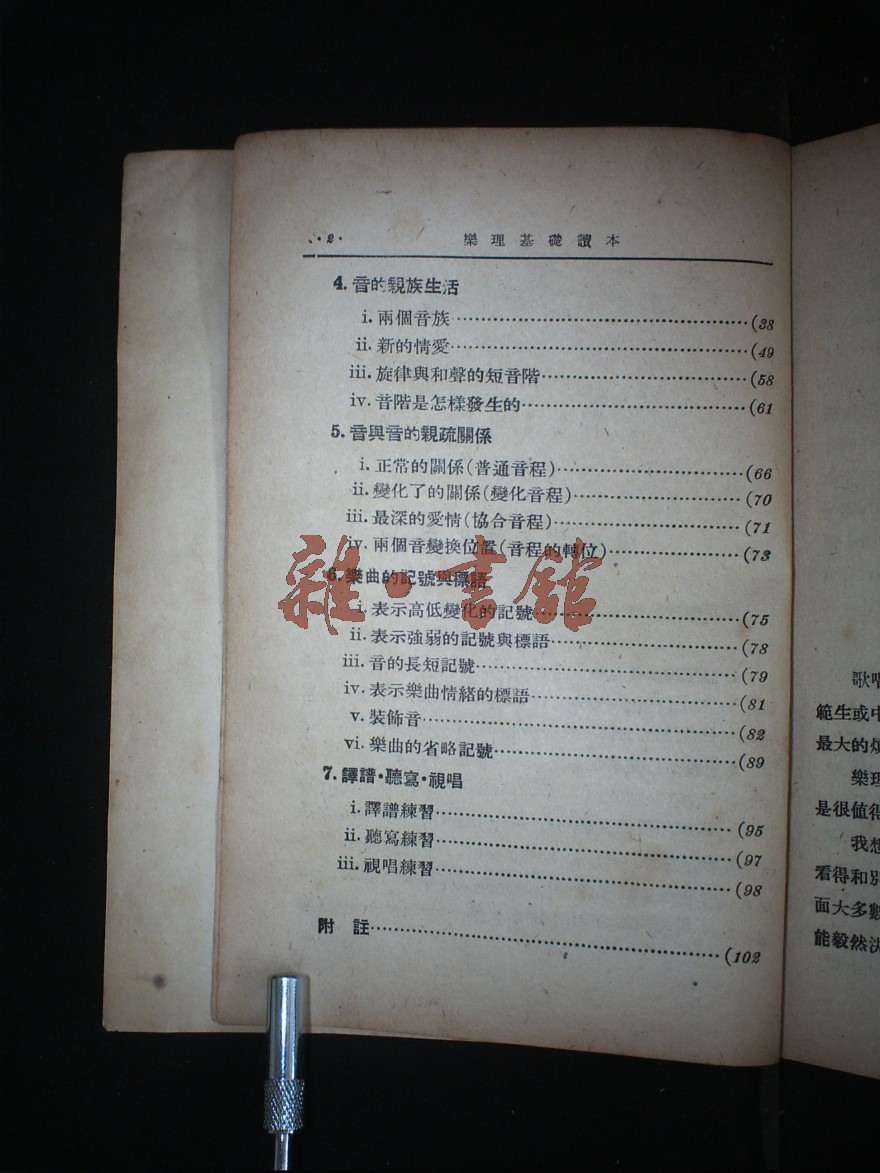 ·2· 樂理基礎讀本
4. 音的親族生活
i. 兩個音族……(38
ii. 新的情愛……(49
iii. 旋律與和聲的短音階……(58
iv. 音階是怎樣發生的……(61
5. 音與音的親疏關係
i. 正常的關係(普通音程)……(66
ii. 變化了的關係(變化音程)……(70
iii. 最深的愛情(協合音程)……(71
iv. 兩個音變換位置(音程的轉位)……(73
6. 樂曲的記號與標語
i. 表示高低變化的記號……(75
ii. 表示強弱的記號與標語……(78
iii. 音的長短記號……(79
iv. 表示樂曲情緒的標語……(81
v. 裝飾音……(82
vi. 樂曲的省略記號……(89
7. 譯譜·聽寫·視唱
i. 譯譜練習……(95
ii. 聽寫練習……(97
iii. 視唱練習……(98
附 註……(102
雜·書館
歌唱
範生或中
最大的煩
樂理
是很值得
我想
看得和別
面大多數
能毅然決